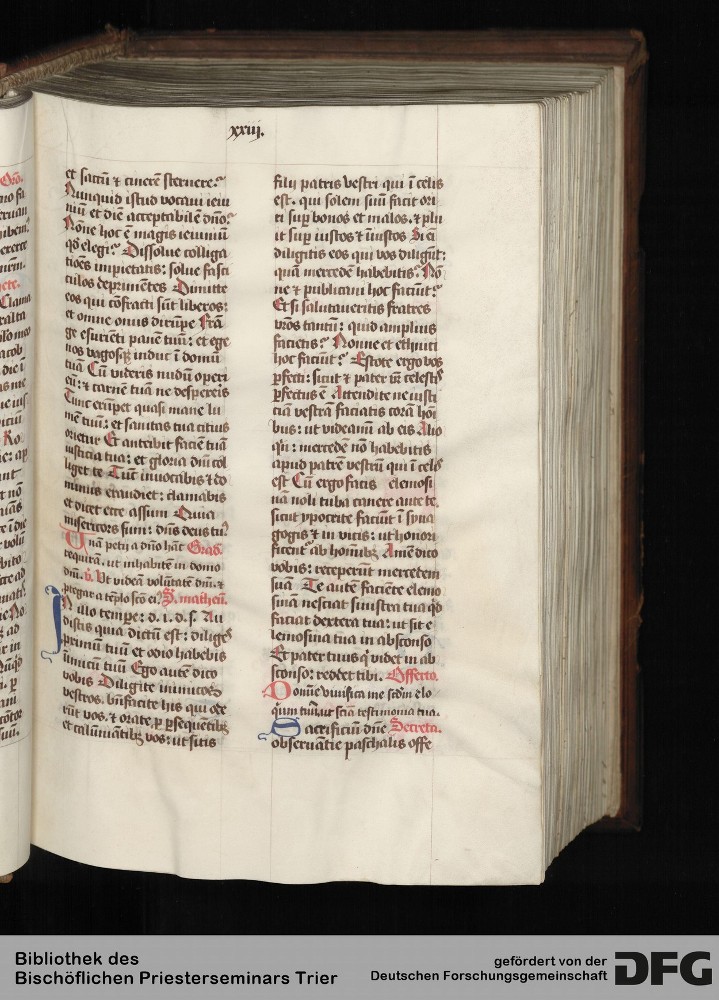 xxiij.
et saccū ⁊ cinerē sternere?
Nunquid istud vocaui ieiu
niū et diē acceptabilē dño?
Nōne hoc ē magis ieiuniū
qḋ elegi? Dissolue colliga
tiōes impietatis: solue fasci
culos deprimētes Dimitte
eos qui cōfracti sūt liberos:
et omne onus dirūpe Frā
ge esurienti panē tuū: et ege
nos vagosqꝫ induc ī domū
tuā Cū videris nudū operi
eū: ⁊ carnē tuā ne despexeis
Tunc erūpet quasi mane lu
mē tuū: et sanitas tua citius
orietur Et anteibit faciē tuā
iusticia tua: et gloria dñi col
liget te Tūc inuocabis ⁊ do
minus exaudiet: clamabis
et dicet ecce assum Quia
misericors sum: dñs deus tuꝰ
Unā petij a dño hāc Grad.
requirā. ut inhabitē in domo
dñi. v̉. Ut videā volūtatē dñi. ⁊
ptegar a tēplo scō eiꝰ S. matheū.
In illo tempe: d. i. d. s. Au
distis quia dictū est: diliges
primū tuū et odio habebis
inimicū tuū Ego autē dico
vobis Diligite inimicos
vestros. bñfacite his qui ode
rūt vos. ⁊ orate ꝓ ꝑsequētibꝫ
et calūniātibꝫ vos: ut sitis
filij patris vestri qui ī celis
est. qui solem suū facit ori
ri suꝑ bonos et malos. ⁊ plu
it suꝑ iustos ⁊ īiustos Si eī
diligitis eos qui vos diligūt:
quā mercedē habebitis? Nō
ne ⁊ publicani hoc faciūt?
Et si salutaueritis fratres
vr̄os tantū: quid amplius
facietis? Nonne et ethnici
hoc faciūt? Estote ergo vos
ꝑfecti: sicut ⁊ pater vr̄ celestis
ꝑfectus ē Attendite ne iusti
ciā vestrā faciatis corā hoī
bus: ut videamī ab eis Alio
qñ: mercedē nō habebitis
apud patrē vestrū qui ī celis
est Cū ergo facis elemosi
nā noli tuba canere ante te.
sicut ypocrite faciūt ī syna
gogis ⁊ in vicis: ut honori
ficent᷑ ab hominibꝫ Amē dico
vobis: receperūt mercetem
suā Te autē faciēte elemo
sinā nesciat sinistra tua qḋ
faciat dextera tua: ut sit e
lemosina tua in absconso
Et pater tuus q̇ videt in ab
sconso: reddet tibi. Offerto.
Domine viuifica me scḋm elo
quiū tuū. ut sciā testimonia tua.
Sacrificiū dñe Secreta.
obseruātie paschalis offe
Bibliothek des
Bischöflichen Priesterseminars Trier
gefördert von der
Deutschen Forschungsgemeinschaft
DFG